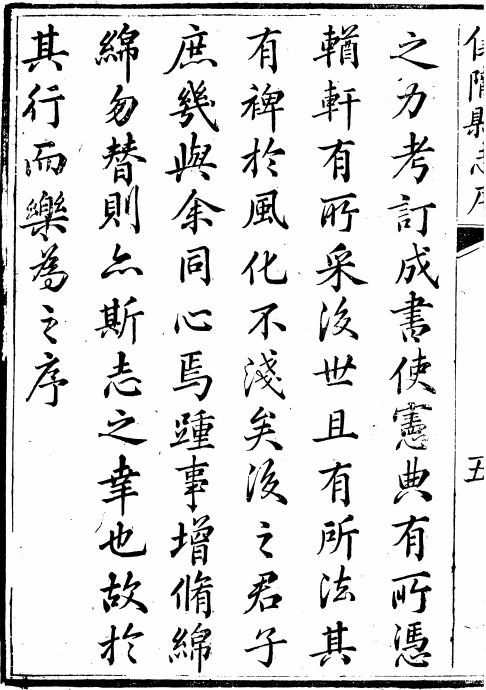 之力考訂成書使憲典有所憑
輶軒有所采後世且有所法其
有裨於風化不淺矣後之君子
庶幾與余同心焉踵事增脩綿
綿勿替則亦斯志之幸也故於
其行而樂為之序
縣志序
五